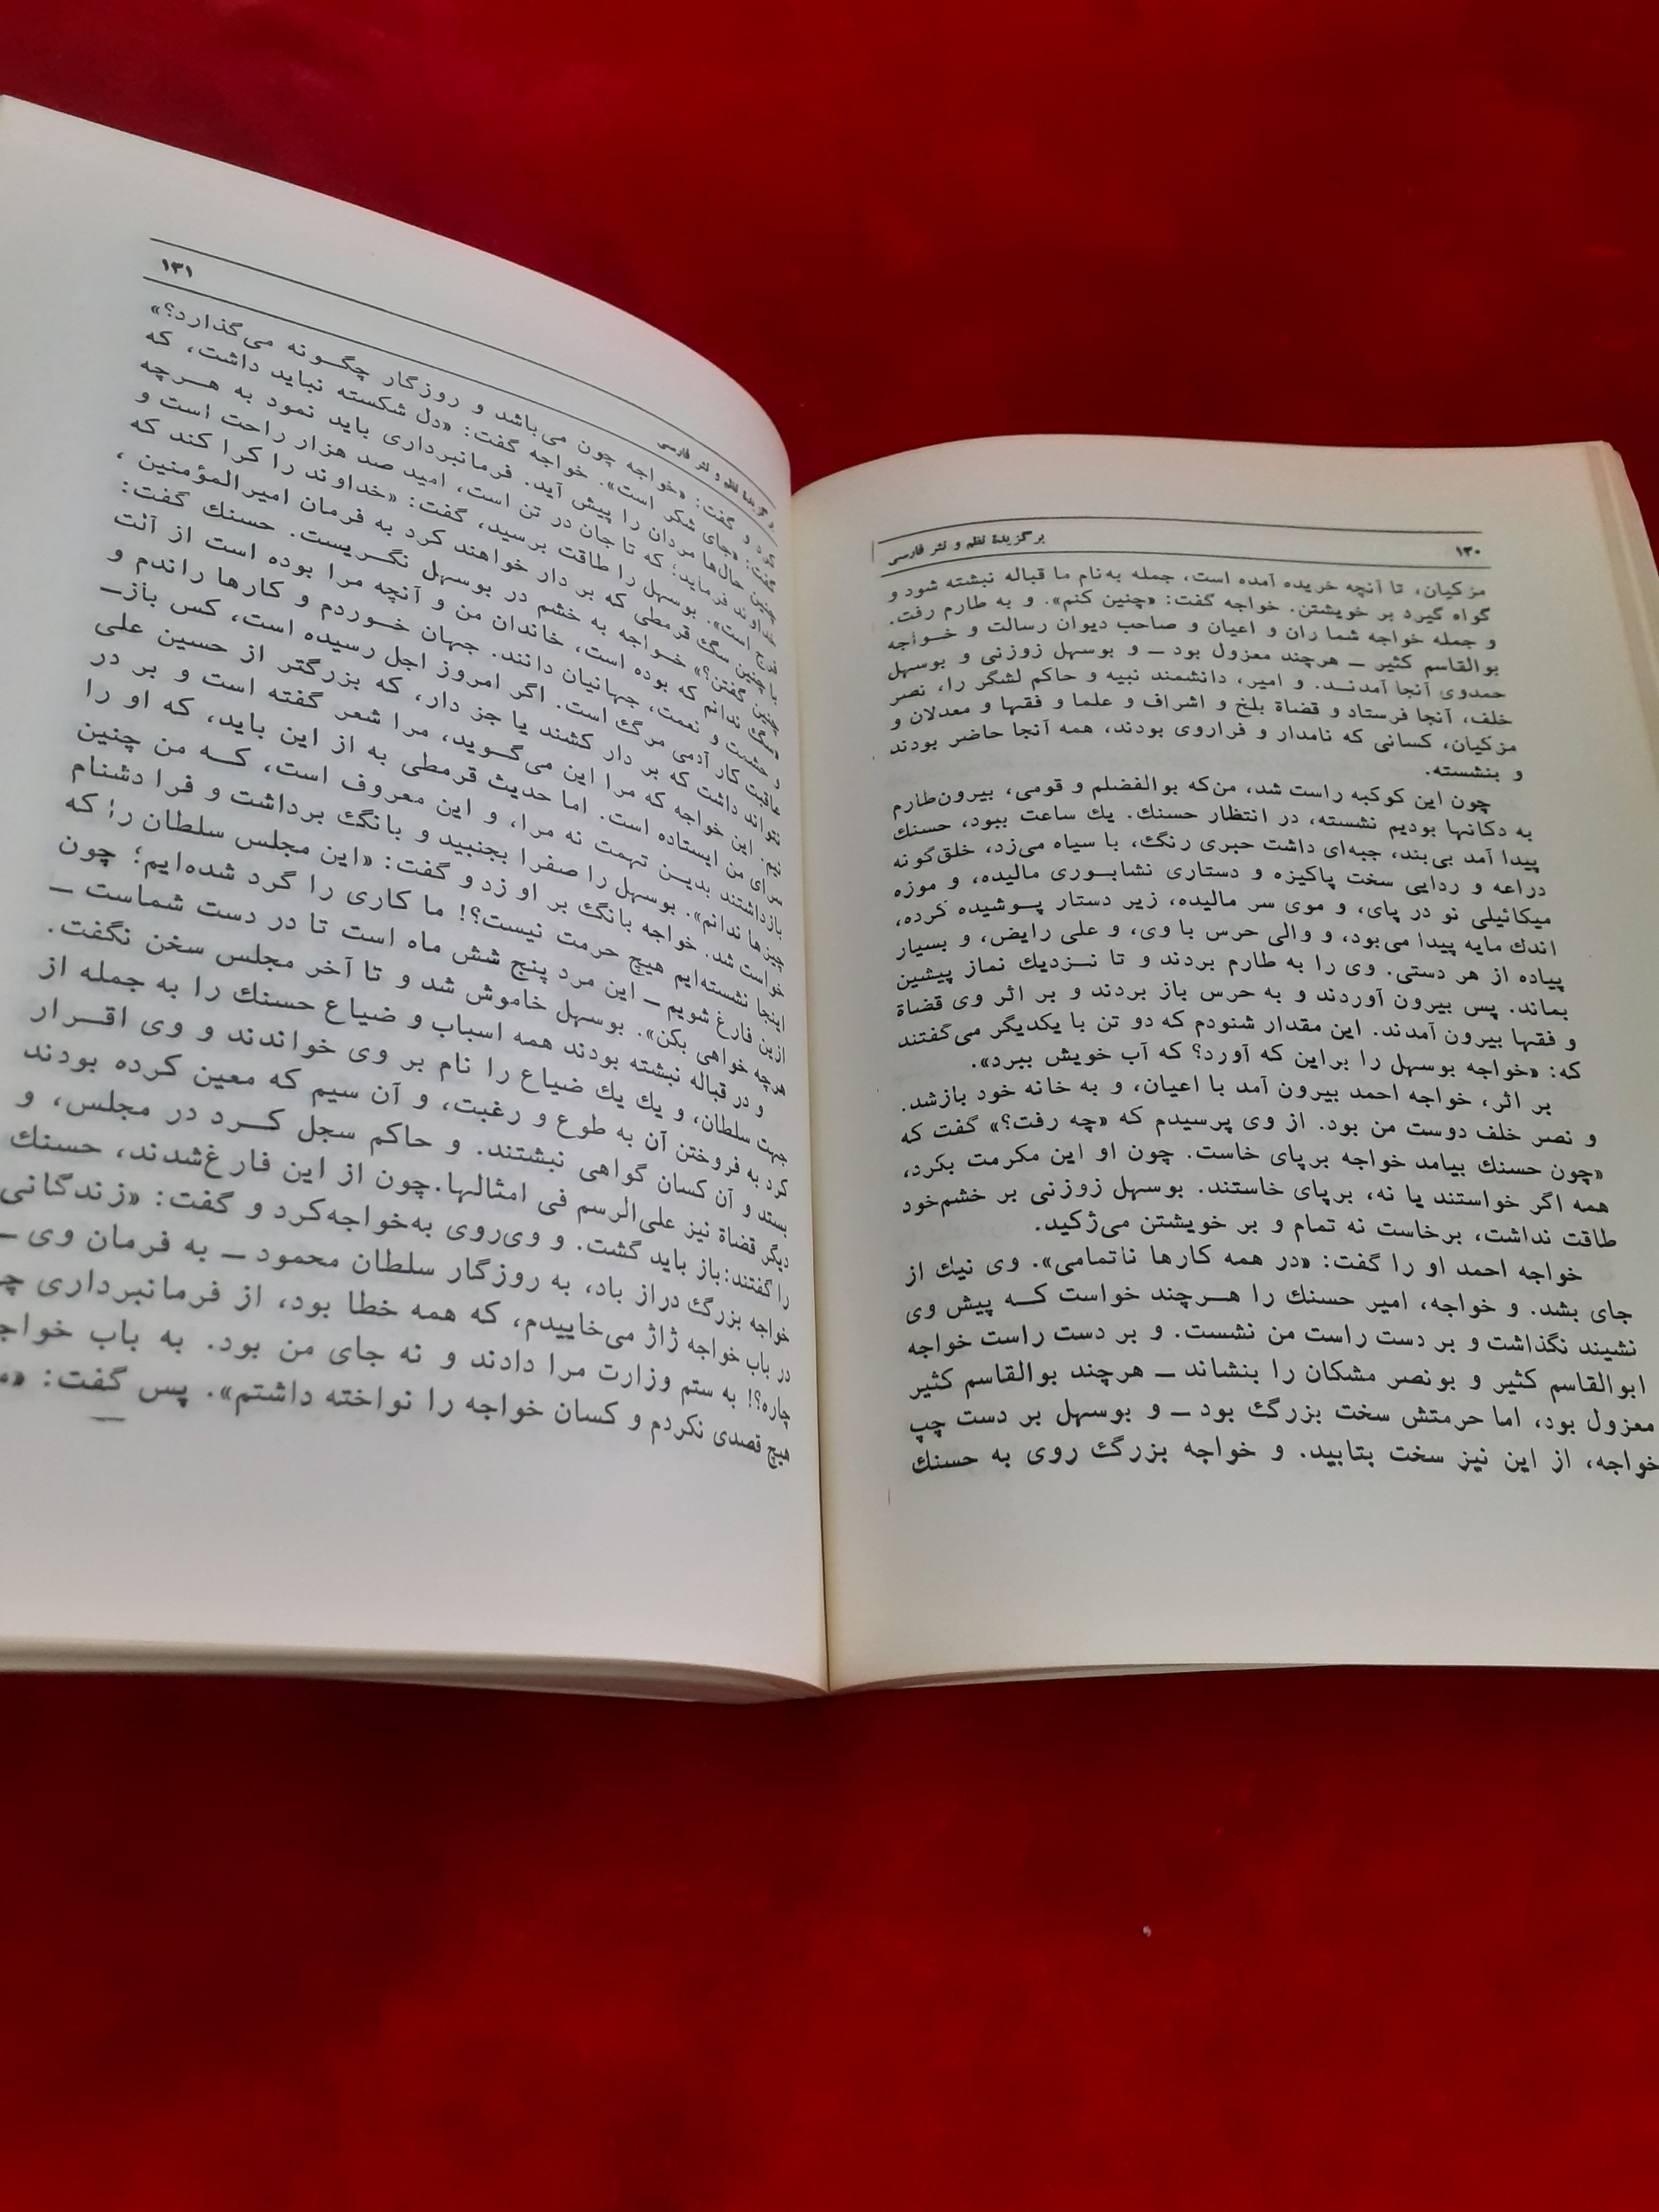 ۱۳۰
برگزیدهٔ نظم و نثر فارسی
مزکیان، تا آنچه خریده آمده است، جمله به‌نام ما قباله نبشته شود و
گواه گیرد بر خویشتن. خواجه گفت: «چنین کنم». و به طارم رفت.
و جمله خواجه شماران و اعیان و صاحب دیوان رسالت و خواجه
بوالقاسم کثیر ــ هرچند معزول بود ــ و بوسهل زوزنی و بوسهل
حمدوی آنجا آمدند. و امیر، دانشمند نبیه و حاکم لشگر را، نصر
خلف، آنجا فرستاد و قضاة بلخ و اشراف و علما و فقها و معدلان و
مزکیان، کسانی که نامدار و فراروی بودند، همه آنجا حاضر بودند
و بنشسته.
چون این کوکبه راست شد، من‌که بوالفضلم و قومی، بیرون‌طارم
به دکانها بودیم نشسته، در انتظار حسنك. یك ساعت ببود، حسنك
پیدا آمد بی‌بند، جبه‌ای داشت حبری رنگ، با سیاه می‌زد، خلق‌گونه
دراعه و ردایی سخت پاکیزه و دستاری نشابوری مالیده، و موزه
میکائیلی نو در پای، و موی سر مالیده، زیر دستار پوشیده کرده،
اندك مایه پیدا می‌بود، و والی حرس با وی، و علی رایض، و بسیار
پیاده از هر دستی. وی را به طارم بردند و تا نزدیك نماز پیشین
بماند. پس بیرون آوردند و به حرس باز بردند و بر اثر وی قضاة
و فقها بیرون آمدند. این مقدار شنودم که دو تن با یکدیگر می‌گفتند
که: «خواجه بوسهل را براین که آورد؟ که آب خویش ببرد».
بر اثر، خواجه احمد بیرون آمد با اعیان، و به خانه خود بازشد.
و نصر خلف دوست من بود. از وی پرسیدم که «چه رفت؟» گفت که
«چون حسنك بیامد خواجه برپای خاست. چون او این مکرمت بکرد،
همه اگر خواستند یا نه، برپای خاستند. بوسهل زوزنی بر خشم‌خود
طاقت نداشت، برخاست نه تمام و بر خویشتن می‌ژکید.
خواجه احمد او را گفت: «در همه کارها ناتمامی». وی نیك از
جای بشد. و خواجه، امیر حسنك را هرچند خواست که پیش وی
نشیند نگذاشت و بر دست راست من نشست. و بر دست راست خواجه
ابوالقاسم کثیر و بونصر مشکان را بنشاند ــ هرچند بوالقاسم کثیر
معزول بود، اما حرمتش سخت بزرگ بود ــ و بوسهل بر دست چپ
خواجه، از این نیز سخت بتابید. و خواجه بزرگ روی به حسنك
برگزیدهٔ نظم و نثر فارسی
۱۳۱
کرد و گفت: «خواجه چون می‌باشد و روزگار چگونه می‌گذارد؟»
گفت: «جای شکر است». خواجه گفت: «دل شکسته نباید داشت، که
چنین حال‌ها مردان را پیش آید. فرمانبرداری باید نمود به هرچه
خداوند فرماید؛ که تا جان در تن است، امید صد هزار راحت است و
فرج است». بوسهل را طاقت برسید، گفت: «خداوند را کرا کند که
با چنین سگ قرمطی که بر دار خواهند کرد به فرمان امیرالمؤمنین،
چنین گفتن؟» خواجه به خشم در بوسهل نگریست. حسنك گفت:
«سگ ندانم که بوده است، خاندان من و آنچه مرا بوده است از آلت
و حشمت و نعمت، جهانیان دانند. جهان خوردم و کارها راندم و
عاقبت کار آدمی مرگ است. اگر امروز اجل رسیده است، کس باز‌ــ
نتواند داشت که بر دار کشند یا جز دار، که بزرگتر از حسین علی
نیم. این خواجه که مرا این می‌گوید، مرا شعر گفته است و بر در
سرای من ایستاده است. اما حدیث قرمطی به از این باید، که او را
بازداشتند بدین تهمت نه مرا، و این معروف است، که من چنین
چیزها ندانم». بوسهل را صفرا بجنبید و بانگ برداشت و فرا دشنام
خواست شد. خواجه بانگ بر او زد و گفت: «این مجلس سلطان را؛ که
اینجا نشسته‌ایم هیچ حرمت نیست؟! ما کاری را گرد شده‌ایم؛ چون
ازین فارغ شویم ــ این مرد پنج شش ماه است تا در دست شماست ــ
هرچه خواهی بکن». بوسهل خاموش شد و تا آخر مجلس سخن نگفت.
و در قباله نبشته بودند همه اسباب و ضیاع حسنك را به جمله از
جهت سلطان، و یك یك ضیاع را نام بر وی خواندند و وی اقرار
کرد به فروختن آن به طوع و رغبت، و آن سیم که معین کرده بودند
بستد و آن کسان گواهی نبشتند. و حاکم سجل کرد در مجلس، و
دیگر قضاة نیز علی‌الرسم فی امثالها. چون از این فارغ‌شدند، حسنك
را گفتند: باز باید گشت. و وی‌روی به‌خواجه‌کرد و گفت: «زندگانی
خواجه بزرگ دراز باد، به روزگار سلطان محمود ــ به فرمان وی ــ
در باب خواجه ژاژ می‌خاییدم، که همه خطا بود، از فرمانبرداری چه
چاره؟! به ستم وزارت مرا دادند و نه جای من بود. به باب خواجه
هیچ قصدی نکردم و کسان خواجه را نواخته داشتم». پس گفت: